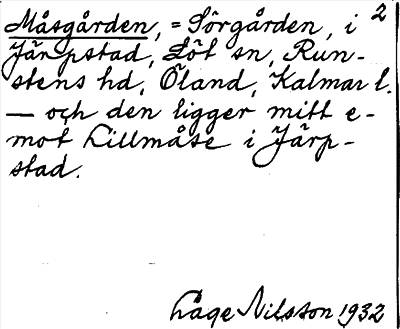 2
Måsgården, = Sörgården, i
Järpstad, Löt sn, Run-
stens hd, Öland, Kalmar l.
— och den ligger mitt e-
mot Lillmåse i Järp-
stad.
Låge Nilsson 1932